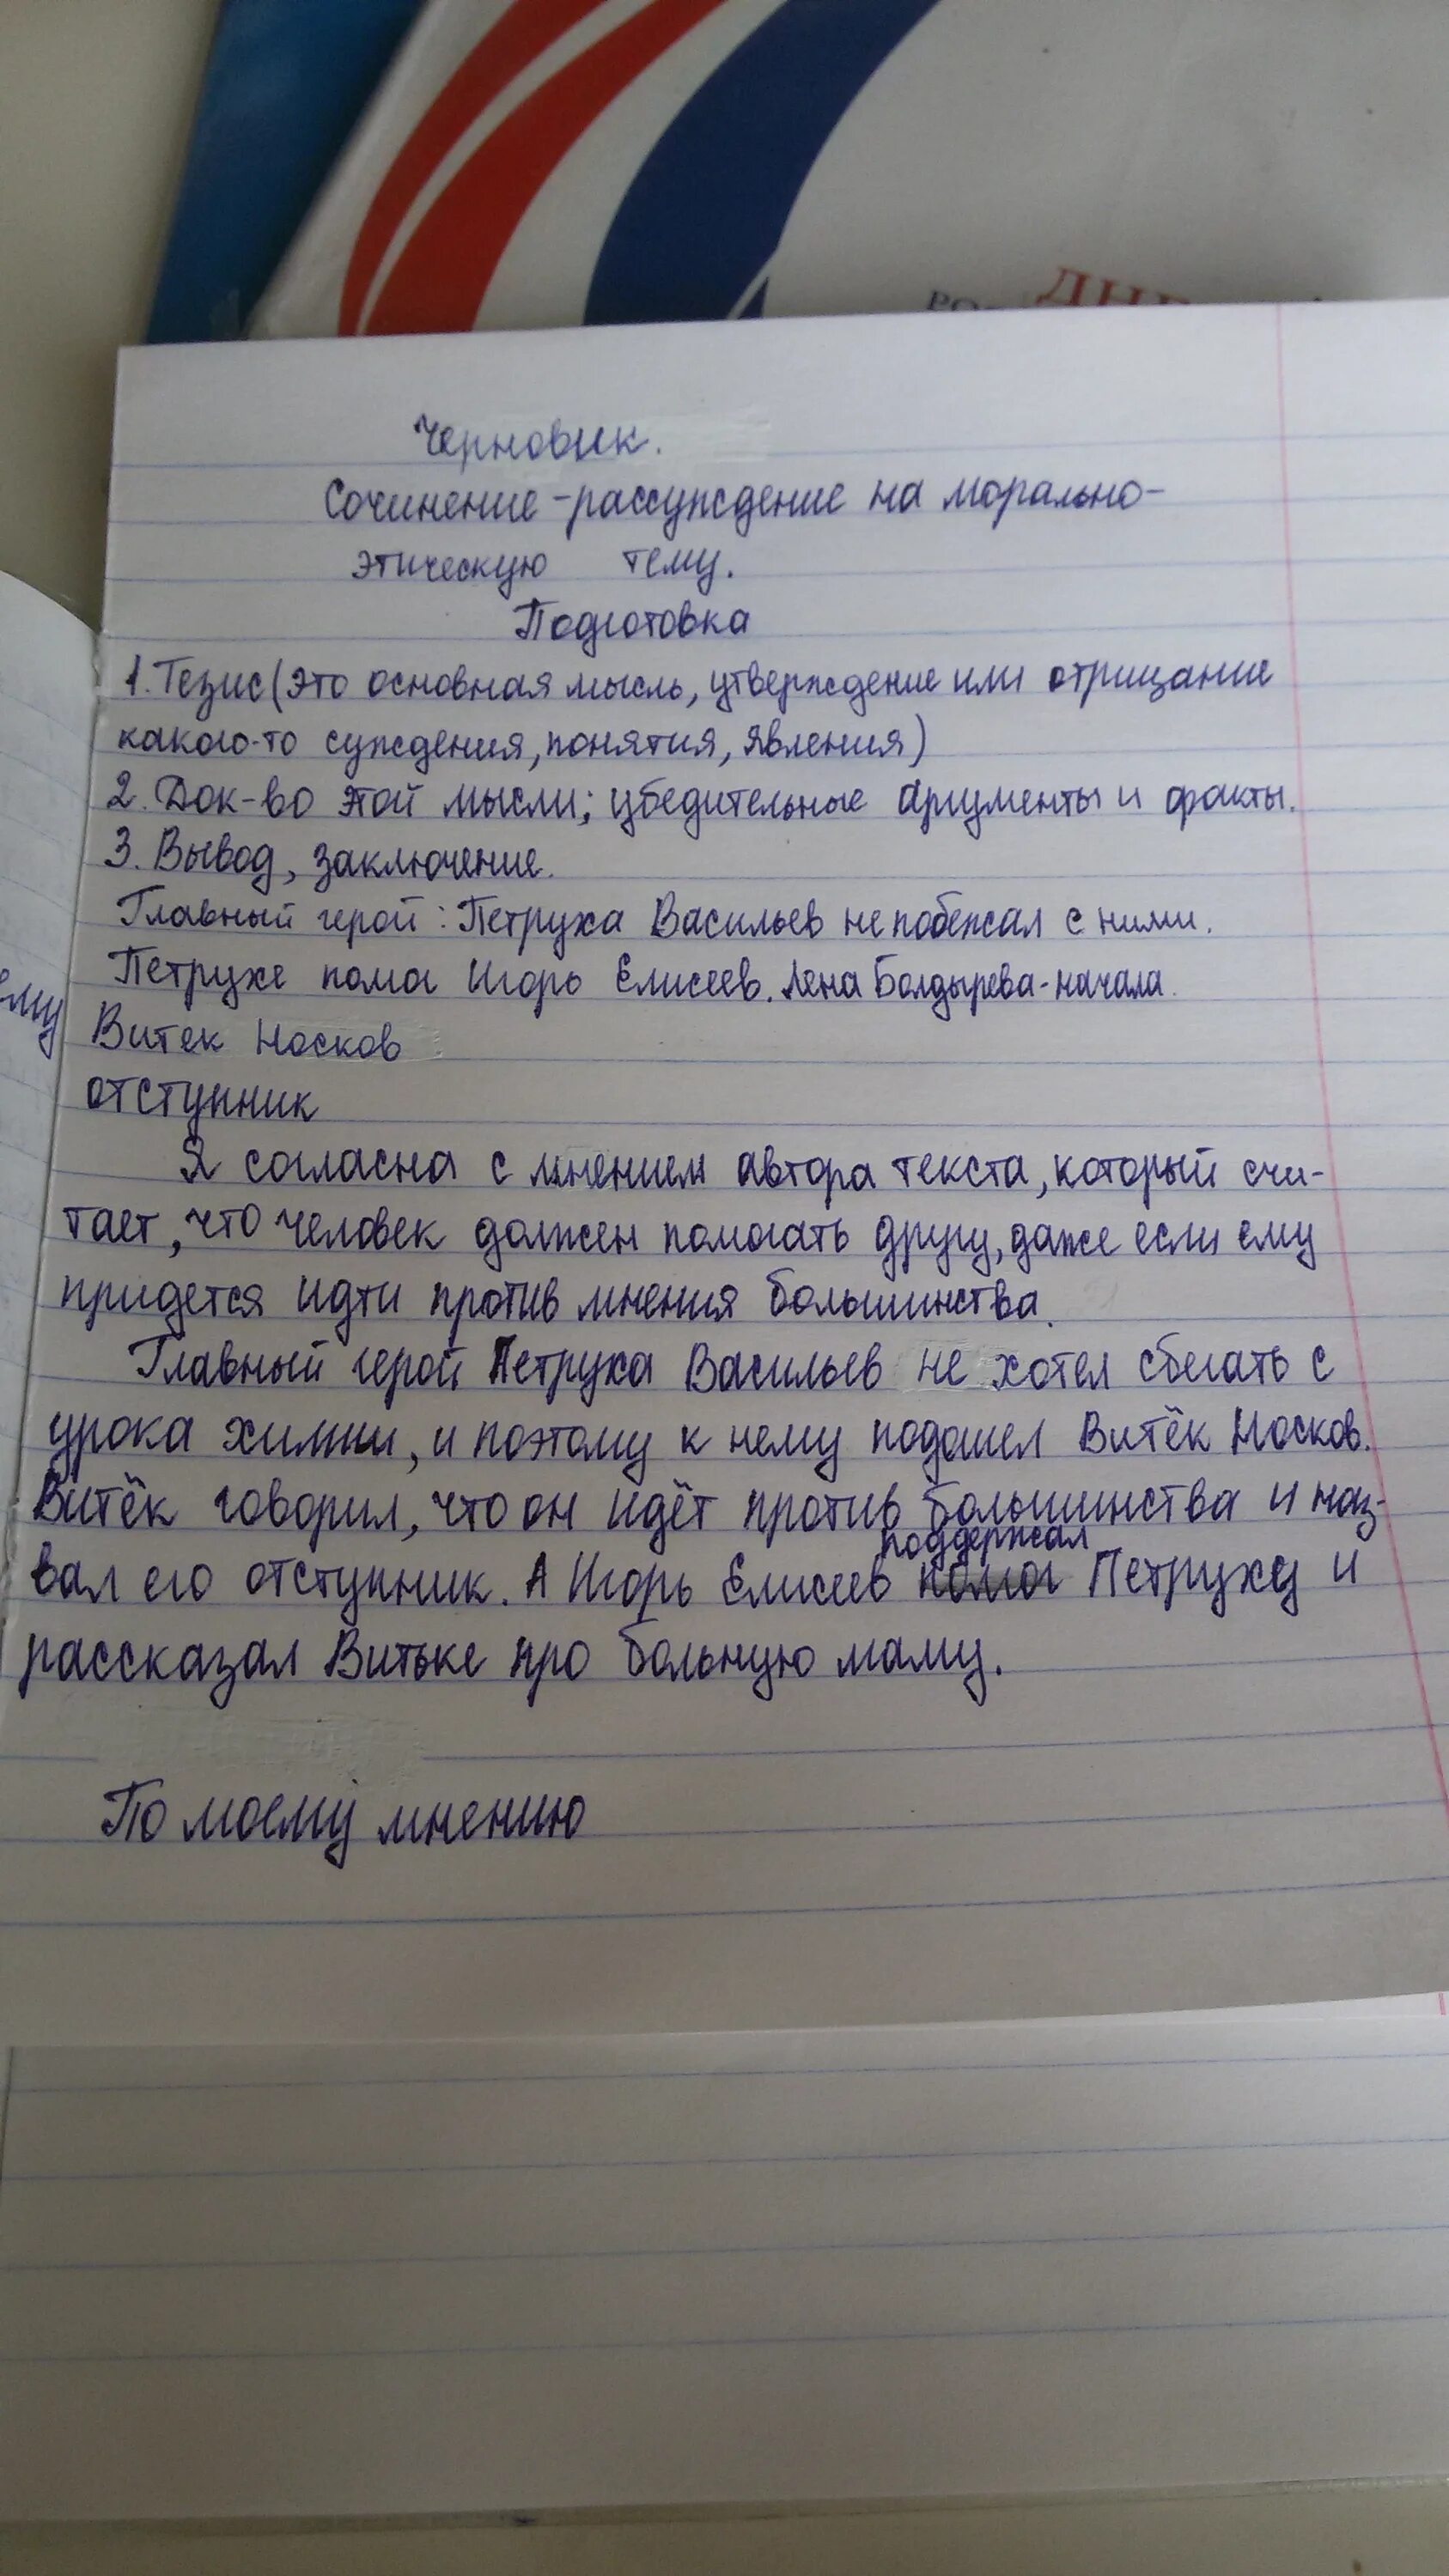 Черновик.
Сочинение-рассуждение на морально-
этическую тему.
Подготовка
1. Тезис (это основная мысль, утверждение или отрицание
какого-то суждения, понятия, явления)
2. Док-во этой мысли; убедительные аргументы и факты.
3. Вывод, заключение.
Главный герой: Петруха Васильев не побежал с ними.
Петрухе помог Игорь Елисеев. Лена Болдырева-начала.
Витек Носков
отступник
Я согласна с мнением автора текста, который счи-
тает, что человек должен помогать другу, даже если ему
придется идти против мнения большинства.
Главный герой Петруха Васильев не хотел сбегать с
урока химии, и поэтому к нему подошел Витёк Носков.
Витёк говорил, что он идёт против большинства и наз-
поддержал
вал его отступник. А Игорь Елисеев помог Петруху и
рассказал Витьке про больную маму.
По моему мнению
ему